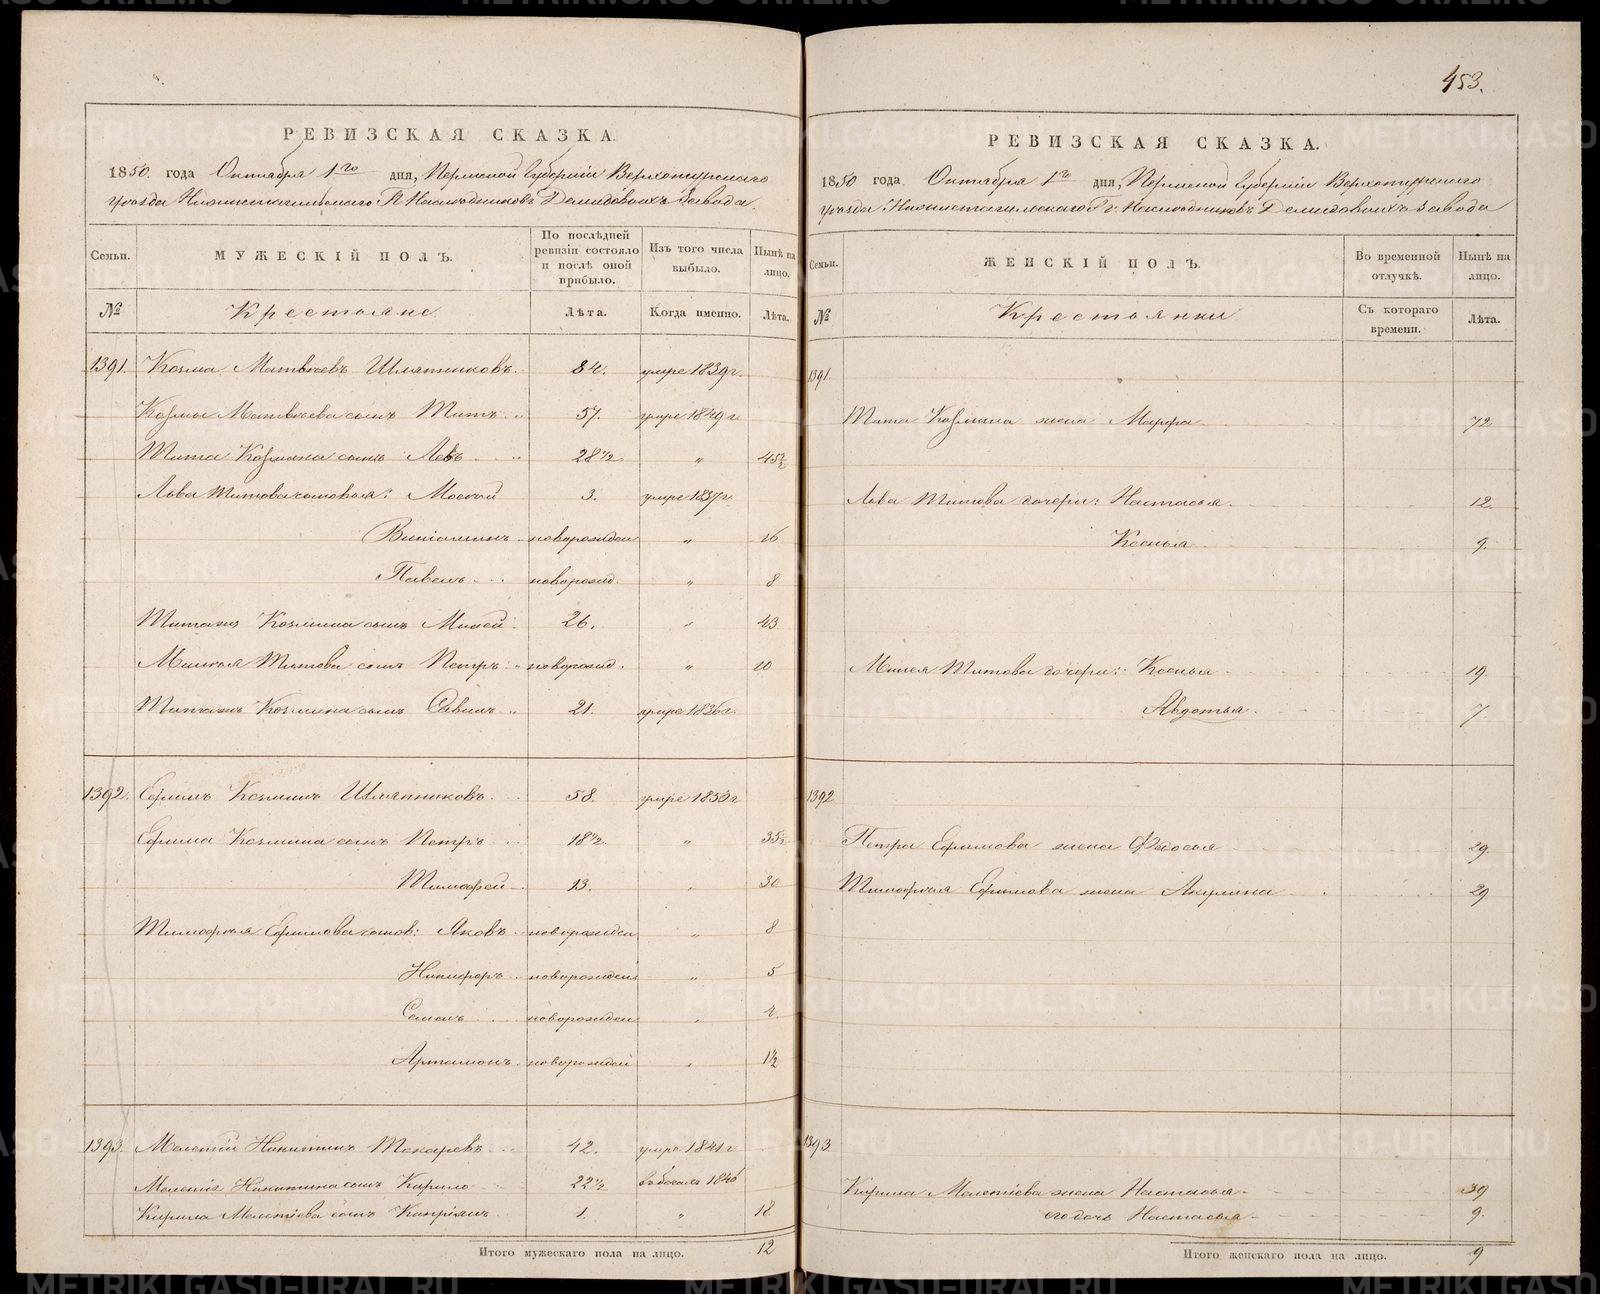 453.
РЕВИЗСКАЯ СКАЗКА.
1850 года Октября 1го дня, Пермской Губерніи Верхотурскаго
уѣзда Нижнетагильскаго Гг. Наслѣдниковъ Демидовыхъ Завода.
Семьи. МУЖЕСКІЙ ПОЛЪ. По послѣдней ревизіи состояло и послѣ оной прибыло. Изъ того числа выбыло. Нынѣ на лицо.
№ Крестьяне Лѣта. Когда именно. Лѣта.
1391. Козма Матвѣевъ Шляпниковъ. 84. умре 1839 г.
Козмы Матвѣева сынъ Титъ 57. умре 1849 г.
Тита Козмина сынъ Левъ 28 1/2 " 45 1/2
Льва Титова сыновья: Мосей 3. умре 1837 г.
Веніаминъ новорожден " 16
Павелъ новорожд. " 8
Титажъ Козмина сынъ Миней 26. " 43
Минея Титова сынъ Петръ новорожд. " 10
Титажъ Козмина сынъ Савинъ 21. умре 1836 г.
1392. Ефимъ Козминъ Шляпниковъ. 58. умре 1850 г
Ефима Козмина сынъ Петръ 18 1/2. " 35 1/2
Тимофей 13. " 30
Тимофея Ефимова сынов: Яковъ новорожден " 8
Никифоръ новорожден " 5
Семенъ новорожден " 4
Артамонъ новорожден " 1 1/2
1393. Мелетій Никитинъ Токаревъ 42. умре 1841 г
Мелетія Никитина сынъ Кирило 22 1/2 1846
Кирила Мелетіева сынъ Кипріянъ 1. " 18
Итого мужескаго пола на лицо. 12
РЕВИЗСКАЯ СКАЗКА.
1850 года Октября 1го дня, Пермской Губерніи Верхотурскаго
уѣзда Нижнетагильскаго Гг. Наслѣдниковъ Демидовыхъ Завода
Семьи. ЖЕНСКІЙ ПОЛЪ. Во временной отлучкѣ. Нынѣ на лицо.
№ Крестьянки Съ котораго времени. Лѣта.
1391.
Тита Козмина жена Марфа 72
Льва Титова дочери: Настасья 12.
Ксенья 9.
Минея Титова дочери: Ксенья 19.
Авдотья 7.
1392
Петра Ефимова жена Федосья 29.
Тимофея Ефимова жена Акулина 29
1393.
Кирила Мелетіева жена Настасья 39
его дочь Настасья 9.
Итого женскаго пола на лицо. 9
METRIKI.GASO-URAL.RU